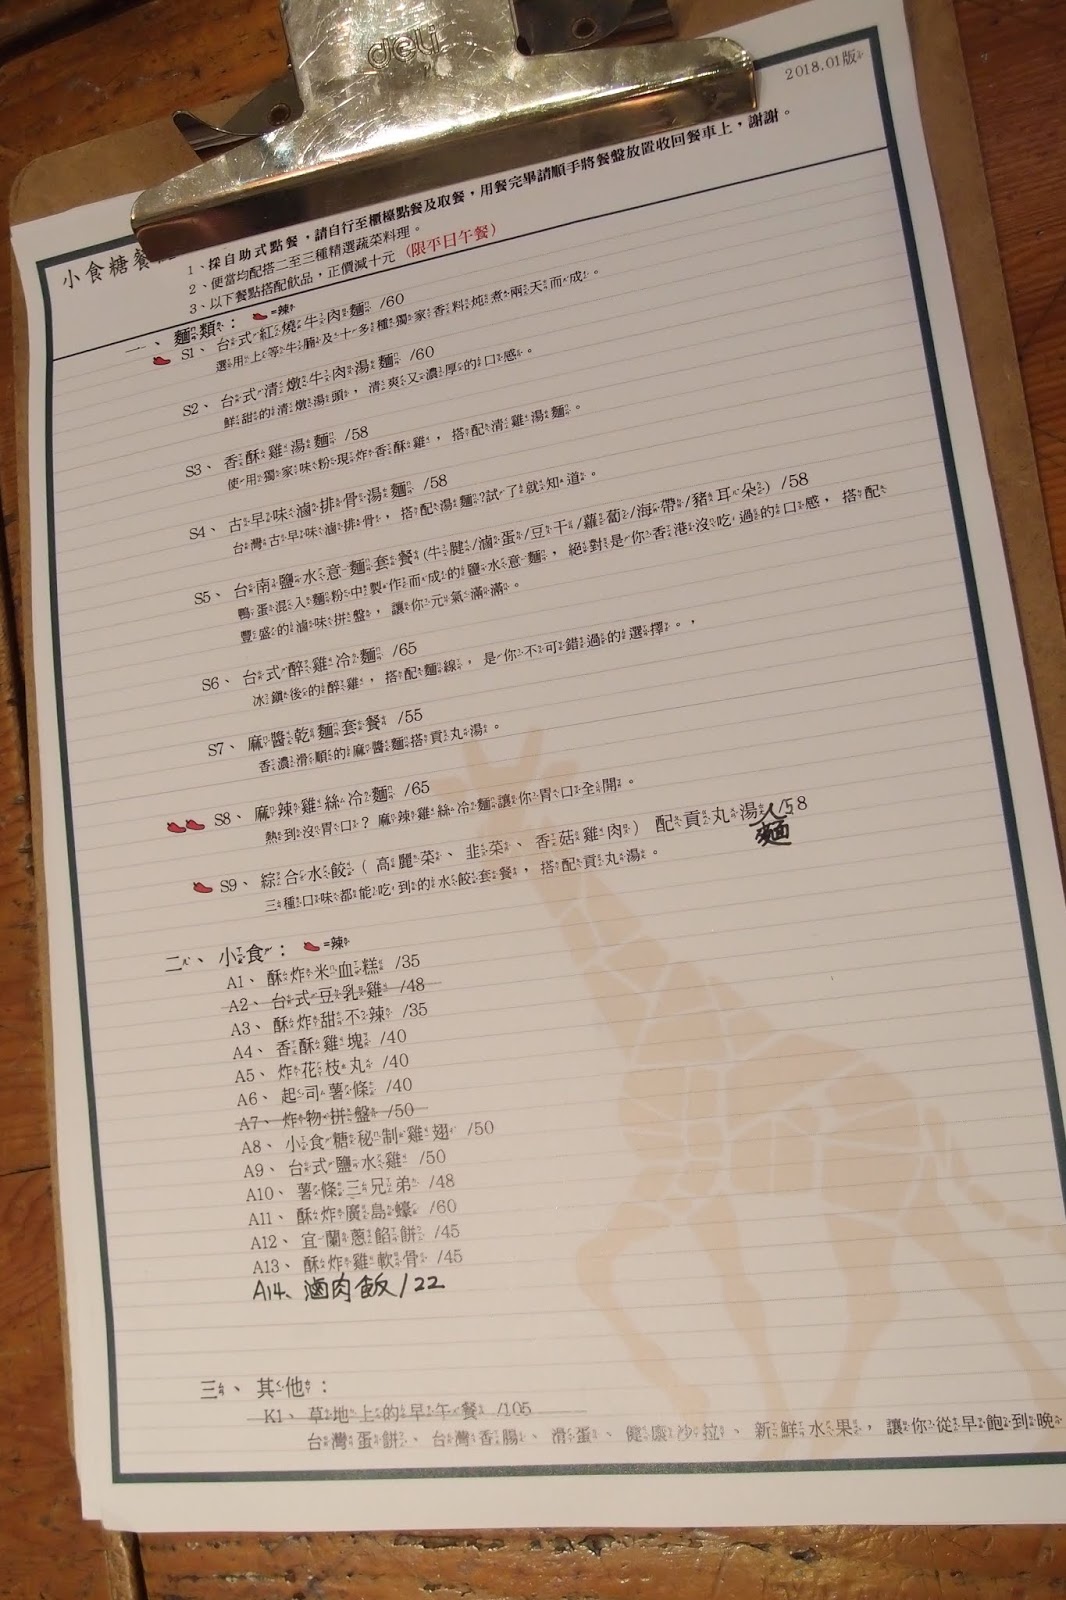 deli
2018.01版
小食糖餐
1、採自助式點餐，請自行至櫃檯點餐及取餐，用餐完畢請順手將餐盤放置收回餐車上，謝謝。
2、便當均配搭二至三種精選蔬菜料理。
3、以下餐點搭配飲品，正價減十元 (限平日午餐)
一、麵類： =辣
S1、台式紅燒牛肉麵 /60
選用上等牛腩及十多種獨家香料炖煮兩天而成。
S2、台式清燉牛肉湯麵 /60
鮮甜的清燉湯頭，清爽又濃厚的口感。
S3、香酥雞湯麵 /58
使用獨家味粉現炸香酥雞，搭配清雞湯麵。
S4、古早味滷排骨湯麵 /58
台灣古早味滷排骨，搭配湯麵?試了就知道。
S5、台南鹽水意麵套餐(牛腱/滷蛋/豆干/蘿蔔/海帶/豬耳朵) /58
鴨蛋混入麵粉中製作而成的鹽水意麵，絕對是你香港沒吃過的口感，搭配
豐盛的滷味拼盤，讓你元氣滿滿。
S6、台式醉雞冷麵 /65
冰鎮後的醉雞，搭配麵線，是你不可錯過的選擇。，
S7、麻醬乾麵套餐 /55
香濃滑順的麻醬麵搭貢丸湯。
S8、麻辣雞絲冷麵 /65
熱到沒胃口？麻辣雞絲冷麵讓你胃口全開。
S9、綜合水餃(高麗菜、韭菜、香菇雞肉) 配貢丸湯/58
麵
三種口味都能吃到的水餃套餐，搭配貢丸湯。
二、小食： =辣
A1、酥炸米血糕 /35
A2、台式豆乳雞 /48
A3、酥炸甜不辣 /35
A4、香酥雞塊 /40
A5、炸花枝丸 /40
A6、起司薯條 /40
A7、炸物拼盤 /50
A8、小食糖秘制雞翅 /50
A9、台式鹽水雞 /50
A10、薯條三兄弟 /48
A11、酥炸廣島蠔 /60
A12、宜蘭蔥餡餅 /45
A13、酥炸雞軟骨 /45
A14、滷肉飯/22
三、其他：
K1、草地上的早午餐 /105
台灣蛋餅、台灣香腸、滑蛋、健康沙拉、新鮮水果，讓你從早飽到晚